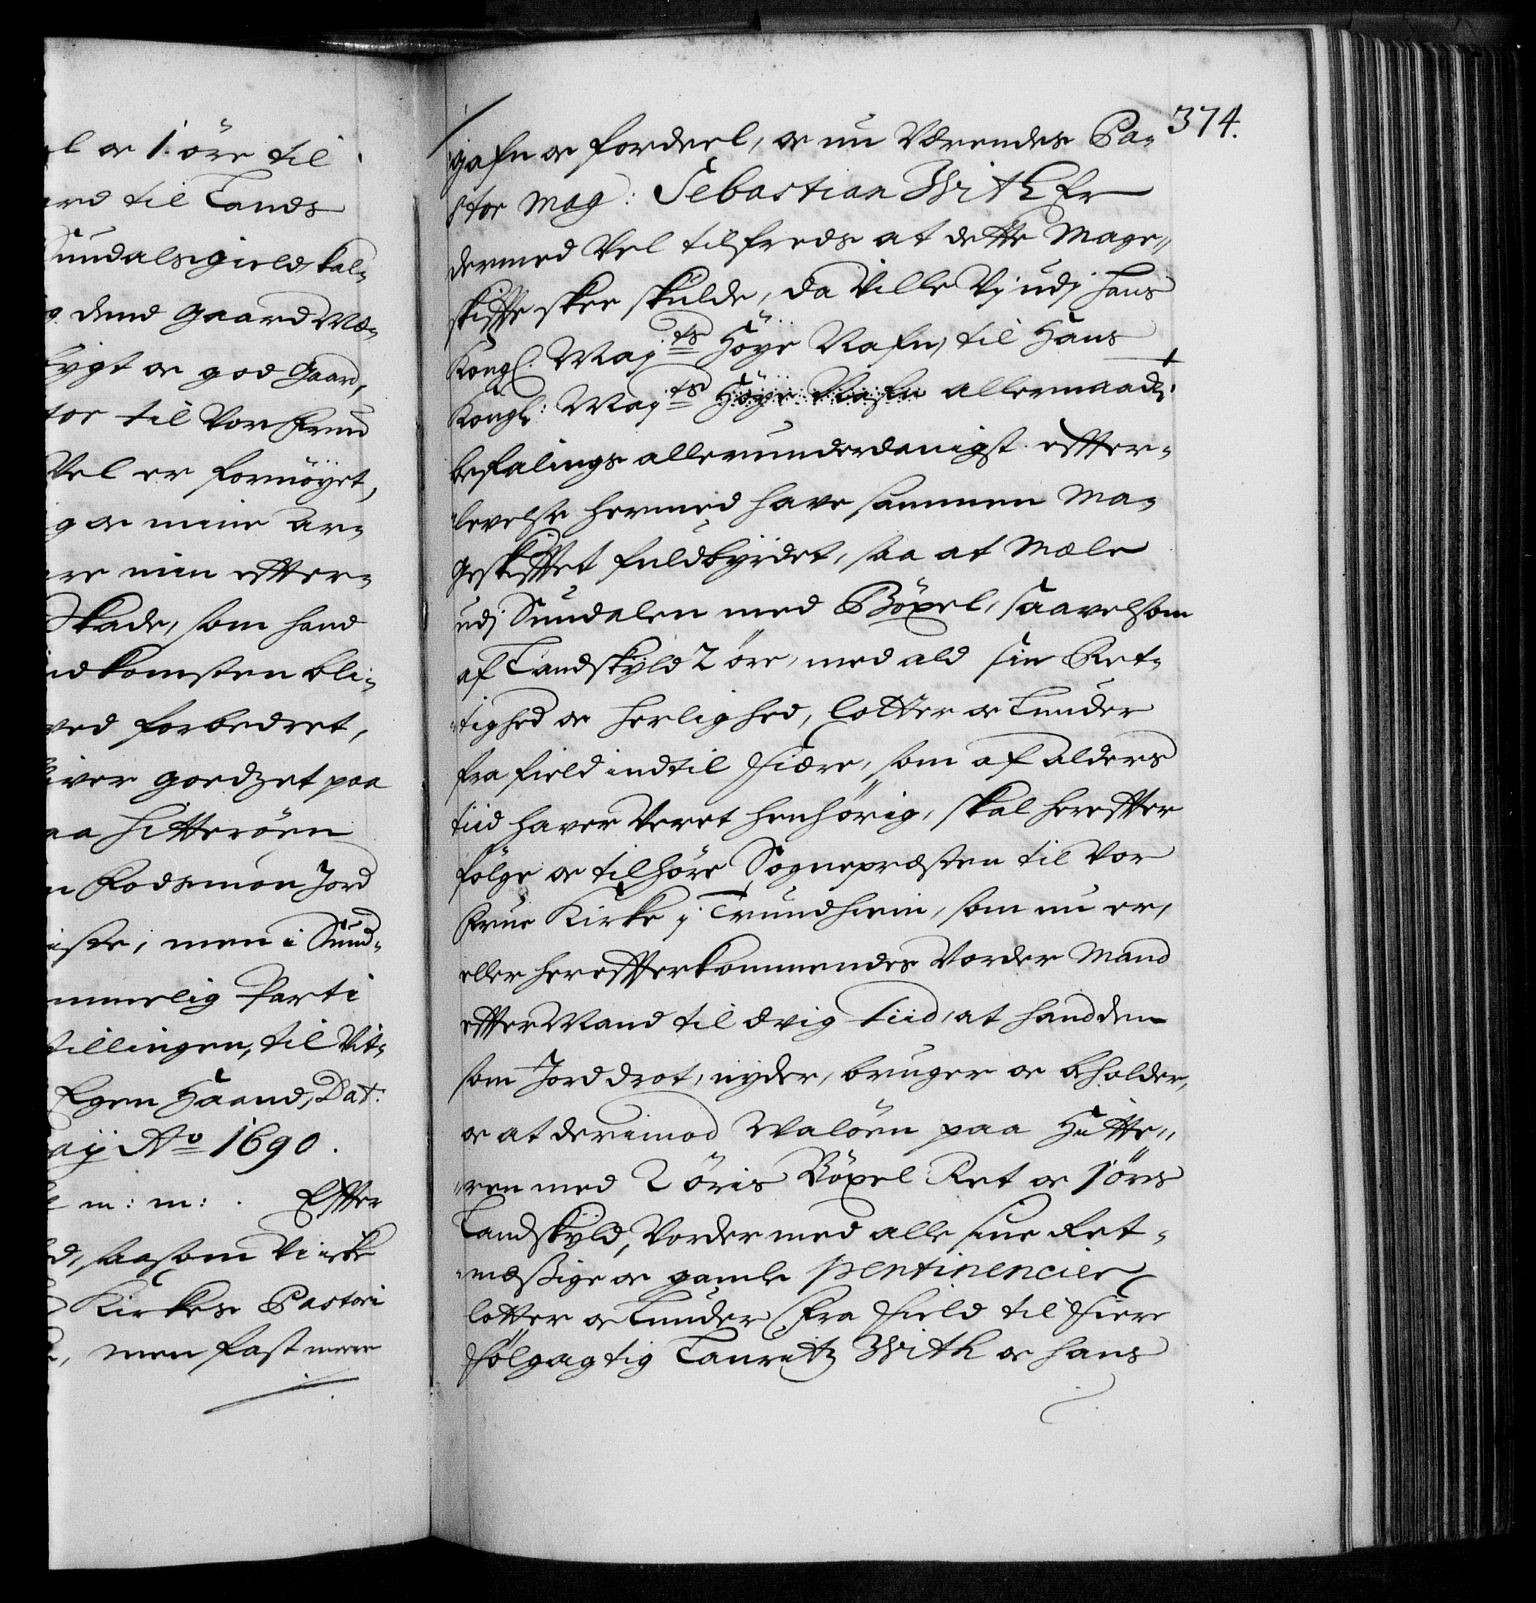 l og 1. öre til
ard til Lands
Sundalsgield kal-
g dend Gaard Mæ-
bygt og god Gaard,
tor til Vor Frue
Vel er fornöyet,
g og mine Ar-
re min effter-
Skade, som hand
ndkomsten bli-
ved forbedret,
iver goedzet paa
aa Hitteröen
n Rodsmon Jord
iste, men i Sund-
mmelig Parti
stillingen, til Vit-
Egen Haand, Dat:
aÿ Ao 1690.
m: m: Effter
d, saasom Vi icke
Kirkes Pastori
men fast meere
374.
gafn og fordeel, og nu Værendes Pa-
stor Mag: Sebastian With Er
dermed Vel tilfreds at dette Mage-
skiffte skee skulde, da Ville Vj udj Hans
Kongl. Maÿts Höye Nafn, til Hans
Kongl: Maÿts Höye Nafn allernaadigste
befalings allerunderdanigst effter-
levelse hermed have sammen Ma-
geskifftet fuldbyrdet, saa at Mæle
udj Sundalen med Böxel, saavelsom
af Landskyld 2 öre, med ald sin Ret-
tighed og Herlighed, lotter og Lunder
fra field indtil fiære, som af alders
tiid haver Veret henhörig, skal hereffter
fölge og tilhöre Sognepræsten til Vor
Frue Kirke j Trundhiem, som nu er,
eller hereffterkommendes Vorder Mand
effter Mand til ævig tiid, at hand den
som Jorddrot, nyder, bruger og beholder,
og at derimod Walöen paa Hitte-
ren med 2 öris Böxel Ret og 1 öris
Landskyld, Vorder med alle sine Ret-
mæssige og gamle pentinencier
lotter og Lunder fra field til fiere
fölgagtig Lauritz With og hans